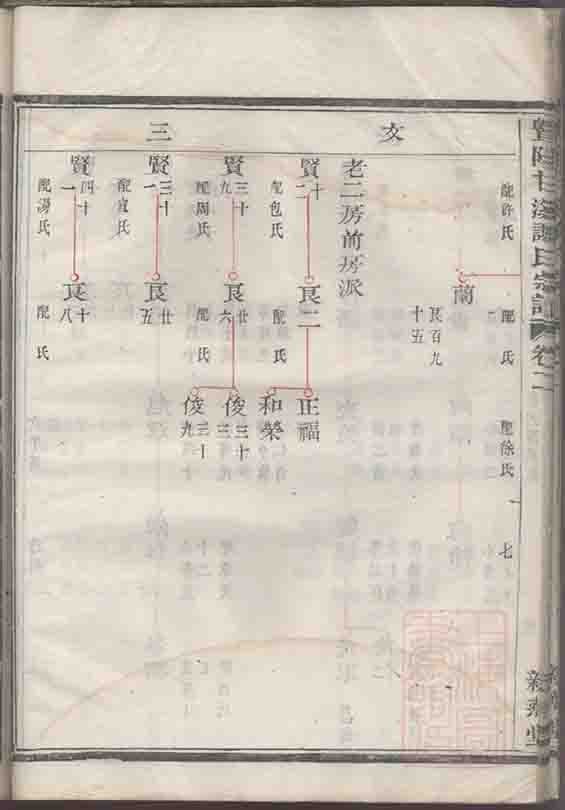 暨陽
謝氏宗譜
卷二
文
三
配許氏
配
氏
配徐氏
七
蘭
艮百九
十五
老二房前房派
賢
十二
配包氏
艮二
配
氏
正福
和榮
賢
三十九
配周氏
艮
廿六
配
氏
俊
三十三
俊
三十九
賢
三十一
配宣氏
艮
廿五
賢
四十一
配湯氏
艮
十八
配
氏